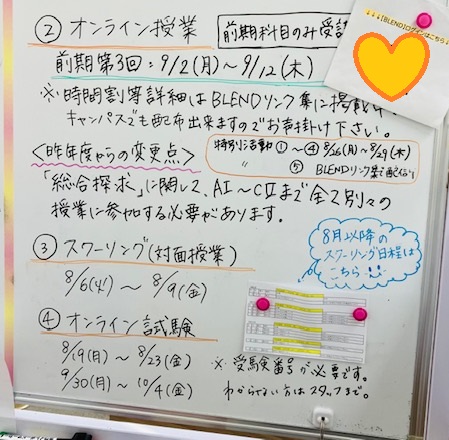 ② オンライン授業
前期科目のみ受講
↓↓↓BLENDログインはこちら↓
前期第3回：9/2(月)～9/12(木)
※時間割等詳細はBLENDリンク集に掲載中
キャンパスでも配布出来ますのでお声掛け下さい。
<昨年度からの変更点>
特別活動①～④ 8/26(月)～8/29(木)
〃 ⑤ BLENDリンク集で
「総合探求」に関して、AI～CⅡまで全て別々の
授業に参加する必要があります。
③ スクーリング(対面授業)
8/6(火)～8/9(金)
8月以降の
スクーリング日程は
こちら
④ オンライン試験
8/19(月)～8/23(金)
9/30(月)～10/4(金)
※受験番号が必要です。
わからない方はスタッフまで。